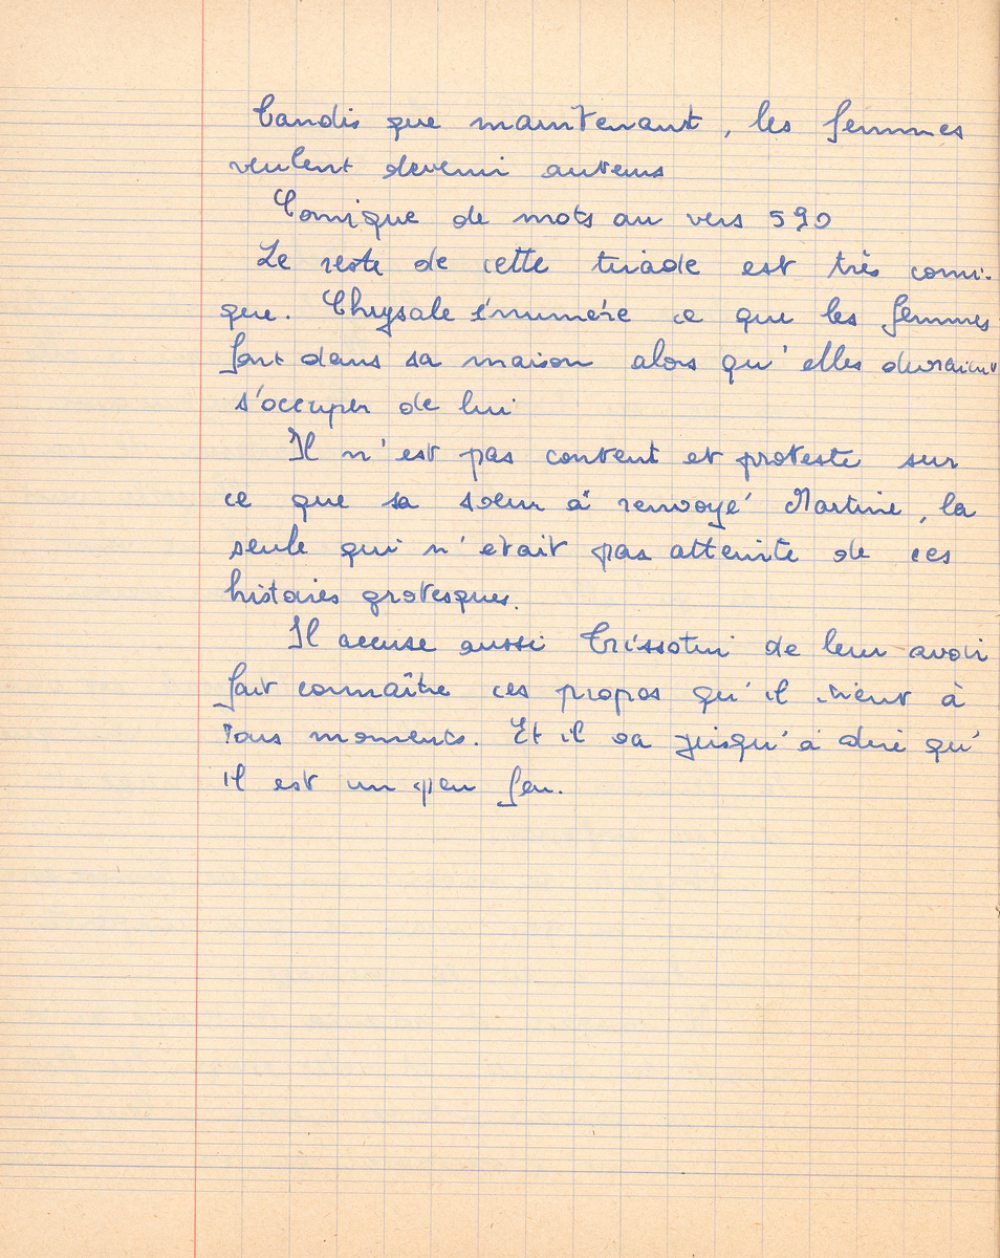 Tandis que maintenant, les femmes
veulent devenir auteurs
Comique de mots au vers 590
Le reste de cette tirade est très comi-
que. Chrysale énumére ce que les femmes
font dans sa maison alors qu'elles devraient
s'occuper de lui
Il n'est pas content et proteste sur
ce que sa soeur à renvoyé Martine, la
seule qui n'était pas atteinte de ces
histoires grotesques.
Il accuse aussi Trissotin de leur avoir
fait connaître ces propos qu'il tient à
tous moments. Et il va jusqu'à dire qu'
il est un peu fou.